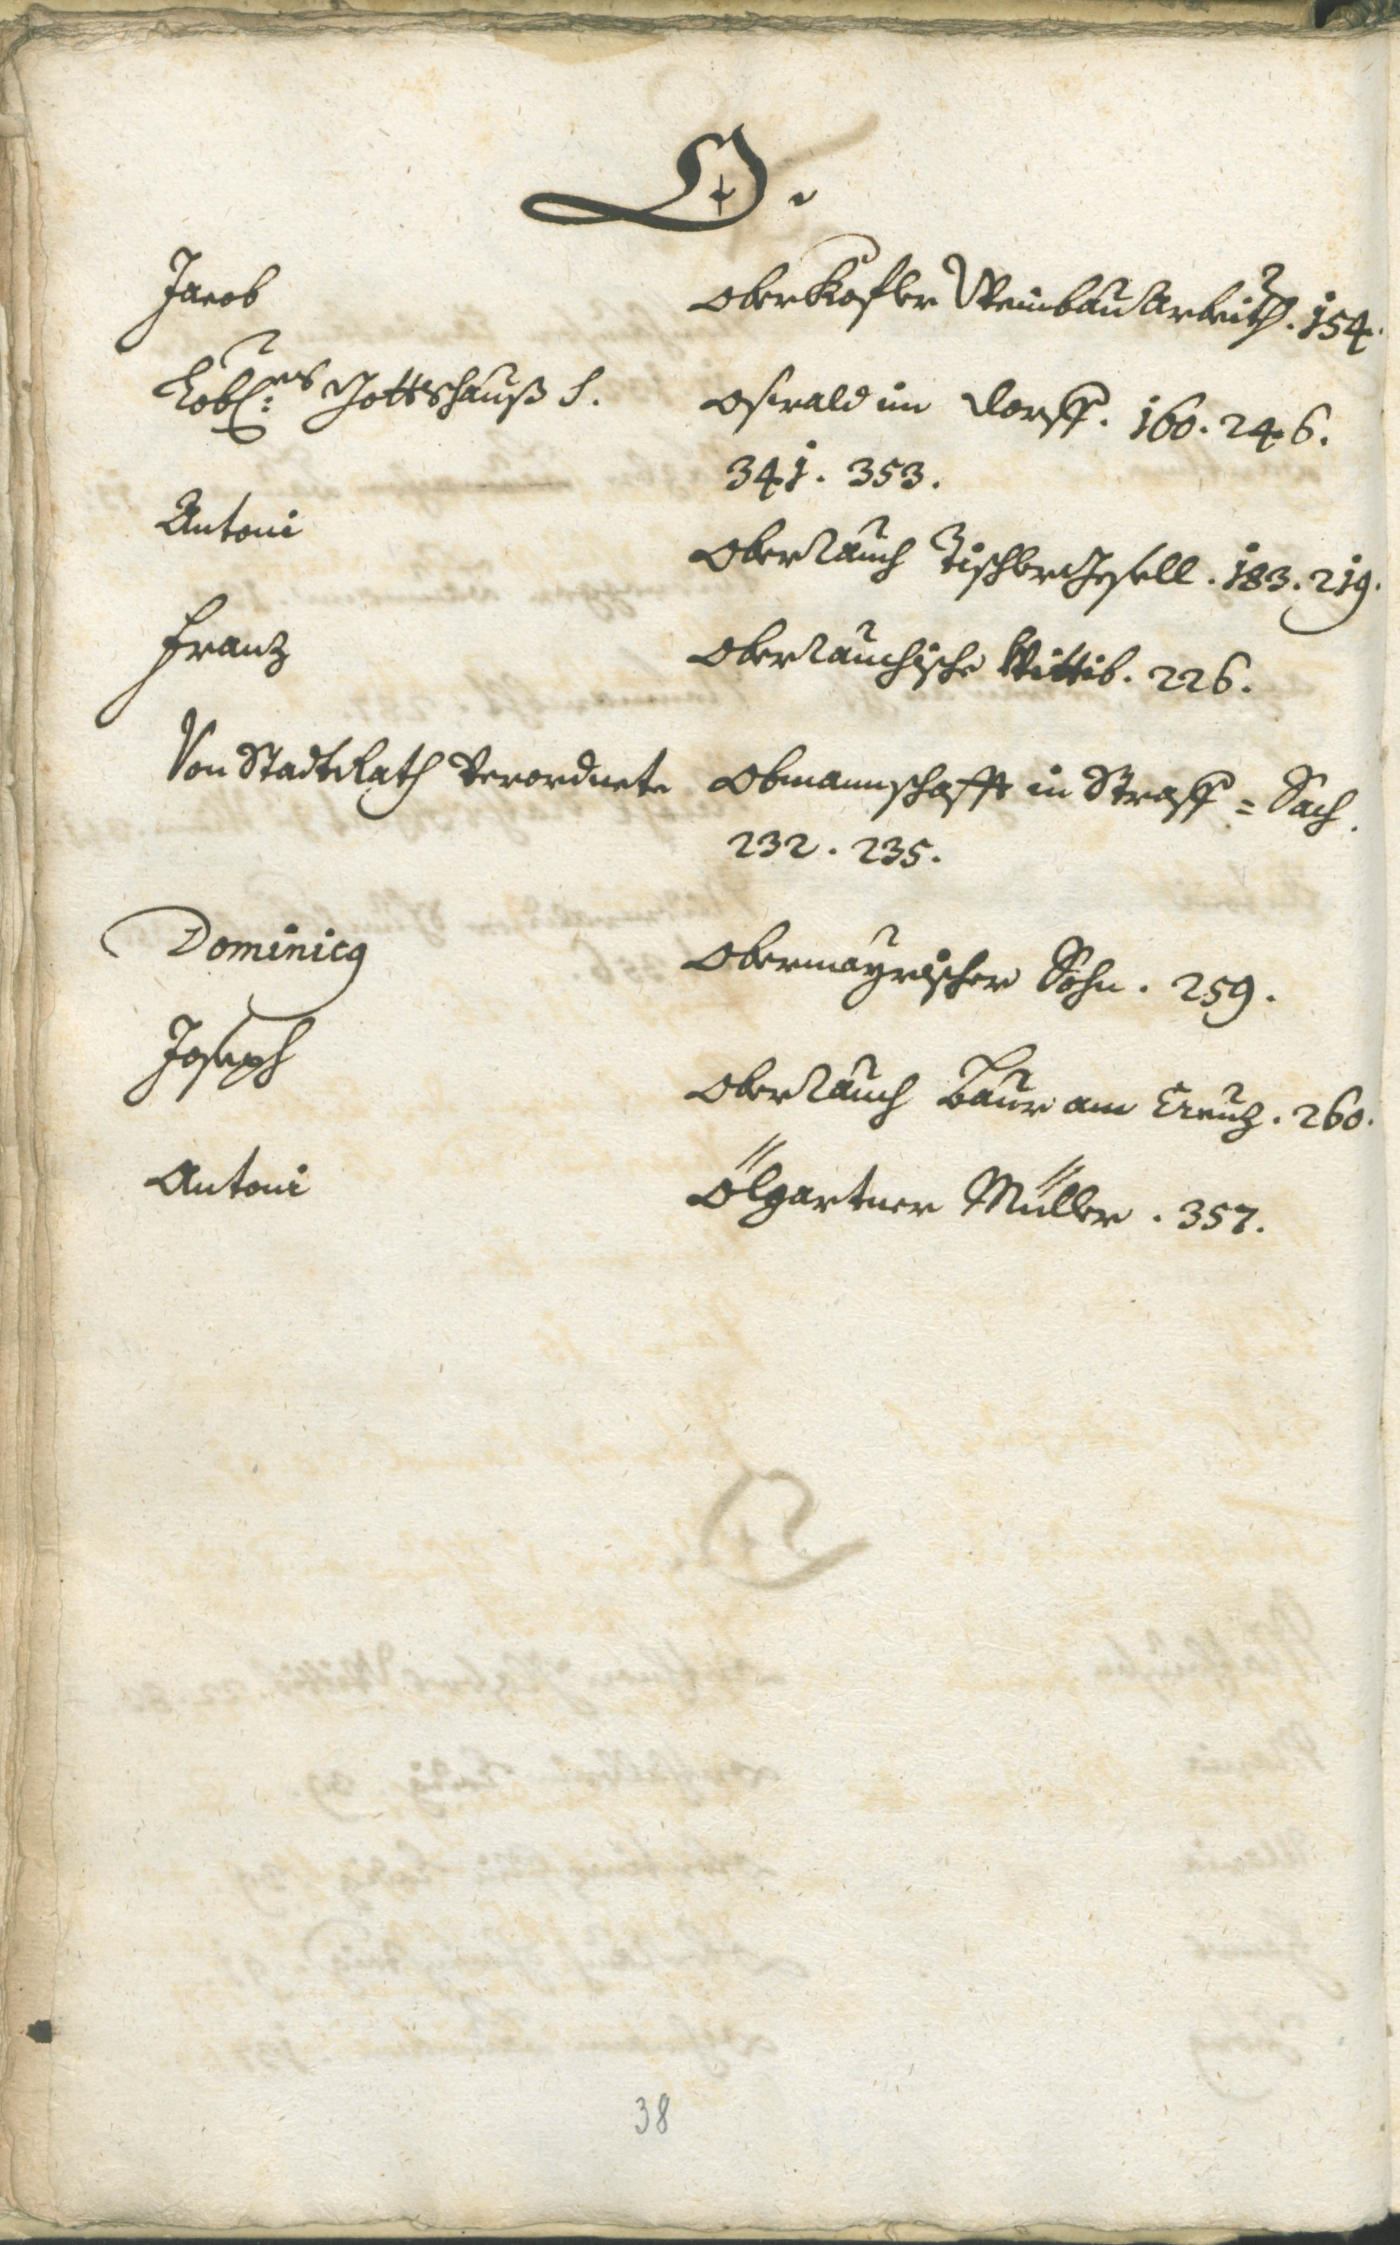 O.
Jacob OberKofler Weinbau Arbeith. 154.
Löbl: es Gottshauß S. Oswald im Dorff. 160. 246.
341. 353.
Antoni Oberrauch Tischler Gesell. 183. 219.
Franz Oberrauchische Wittib. 226.
Von StadtRath Verordnete Obmannschafft in Straff = Sach.
232. 235.
Dominicq Obermayrischer Sohn. 259.
Joseph Oberrauch Baur am Creuz. 260.
Antoni Ölgartner Müller. 357.
38